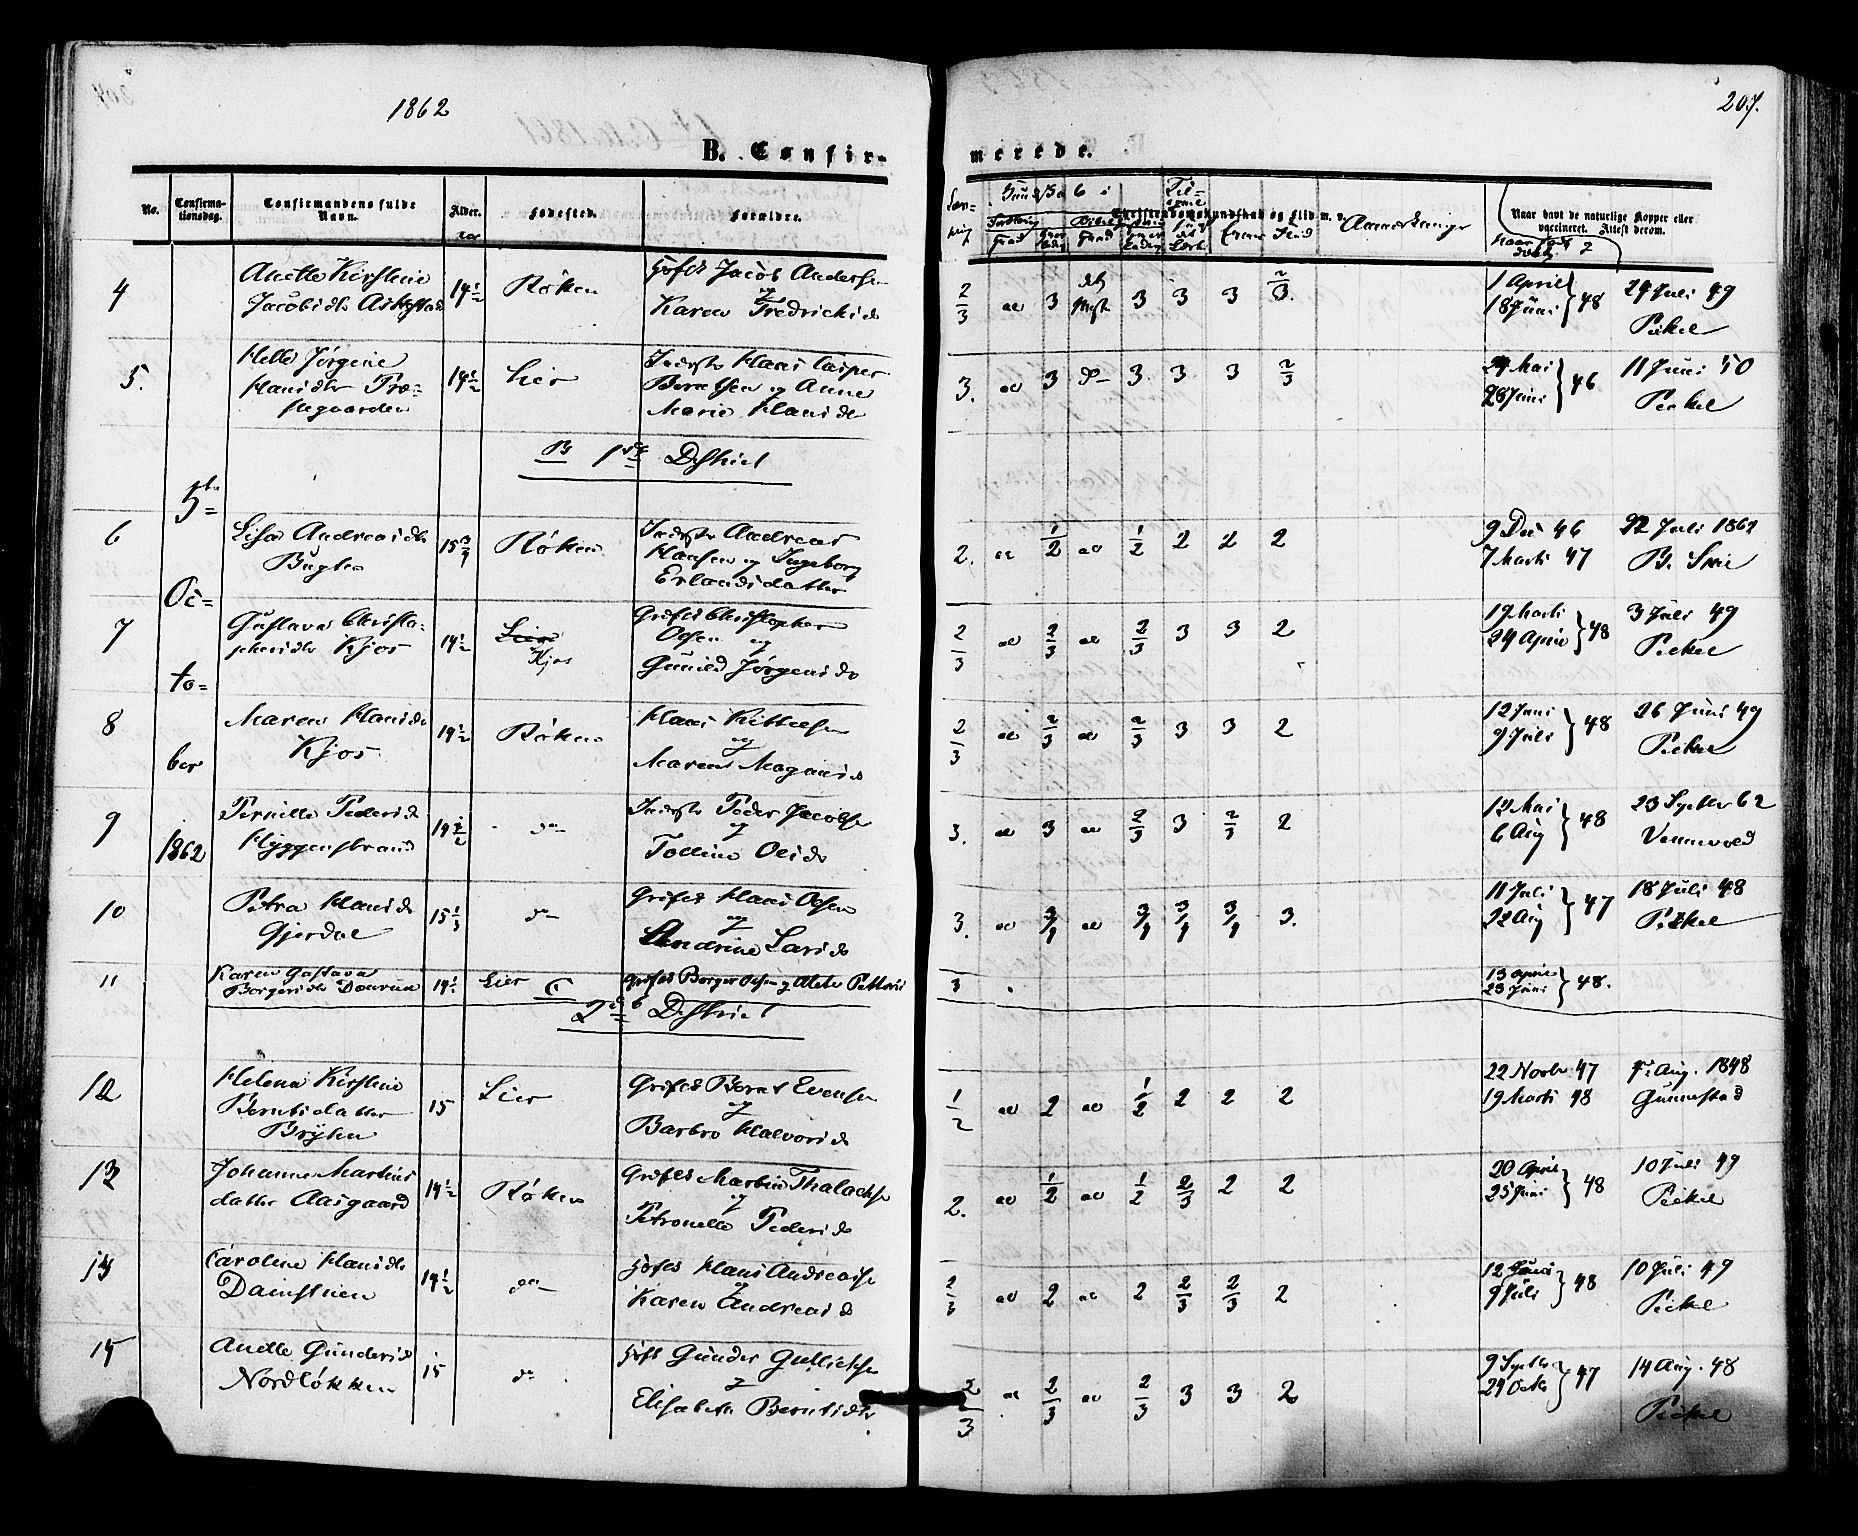 1862
207.
B. Confir-
merede.
No.
Confirma-
tionsdag.
Confirmandens fulde
Navn.
Alder.
Fødested.
Forældre.
Christendomskundskab og Flid m. v.
Anmærkninger
Naar havt de naturlige Kopper eller
vaccineret. Attest derom.
5te Oc= to= ber 1862
4 Anette Kirstine
Jacobsdtr Askestad 14½ Røken
Jacob Andersen
og
Karen Fredriksd
2/3 3 3 3 3 2/3.
1 April
18 Juni } 48
24 Juli 49
Peckel
5. Helle Jørgine
Hansdtr Præ=
stegaarden 14½ Lier
Inderst Hans Casper
Berntsen og Anne
Marie Hansd
3. 3 3. 3 3 2/3
Mai
28 Juni } 46
11 Juni 50
Peckel
B 1ste District
6 Lisa Andreasdtr
Bugten 15¾ Røken
Inderst Andreas
Hansen og Ingeborg
Erlandsdatter
2. ½ ½ 2 2 2
9 Dec 46
7 Marts 47
22 Juli 1862
7 Gustava Christo=
phersdtr Kjos 14½ Lier
Kjos
Christopher
Olsen og
Gunild Jørgensd
2/3 2/3 2/3 3 3 2
19 Marts
24 April } 48
3 Juli 49
Peckel
8 Maren Hansd
Kjos 14½ Røken
Hans Kittelsen
og
Maren Magnusd
2/3 2/3 2/3 3 3 2
12 Juni
9 Juli } 48
26 Juni 49
Peckel
9 Pernille Pedersd
Hyggenstrand 14½ do
Inderst Peder Jacobsen
og
Tolline Olsd
3. 3 2/3 3 2/3 2
12 Mai
6 Aug } 48
23 Septbr 62
Vennevold
10 Petra Hansd
Gjerdal 15⅓ do
Hans Olsen
og
Andrine Larsd
3. 3/4 3/4 3/4 3/4 3.
11 Juli
22 Aug } 47
18 Juli 48
Peckel
11 Karen Gustava
Borgersdtr 14½ Lier
Borger Olsen og
3
13 April
23 Juni } 48.
C
2det District
12 Helena Kirstine
Berntsdatter
Bryhn 15 Lier
Bernt Evensen
og
Barbro Halvorsd
½ 2 ½ 2 2 2
22 Novbr 47
19 Marts 48
Aug. 1848
Gunnestad
13 Johanne Martins
datter Aasgaard 14½ Røken
Martin
og
Petronelle Pedersd
2. ½ ½ 2/3 2 2
20 April
25 Juni } 48
10 Juli 49
Peckel
14 Caroline Hansdtr
Damstuen 14½ do
Hans Andreasen
og
Karen Andreasd
2/3 2 2 2/3 2/3 2
12 Juni
9 Juli } 48
10 Juli 49
Peckel
15 Anette Gundersd
Nordløkken 15 do
Gunder Gulliksen
og
Elisabeth Berntsdtr
2/3 2/3 2/3 3 3 2
9 Septbr
24 Octbr } 47
14 Aug. 48
Peckel